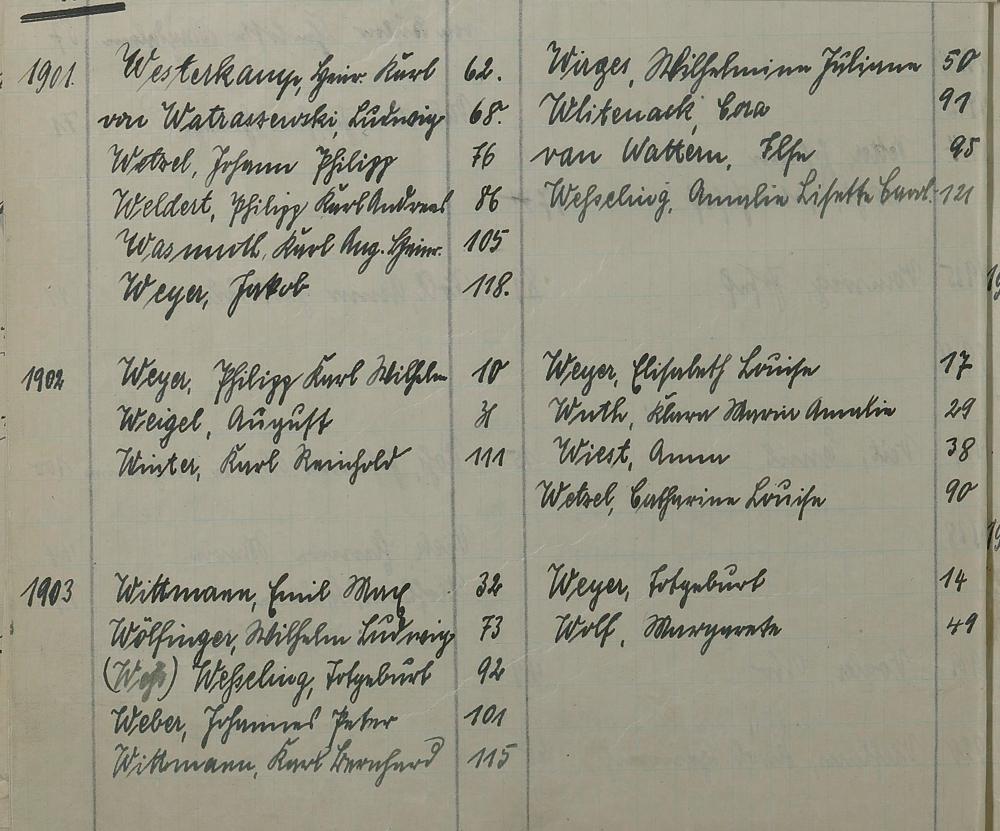 1901. Westerkamp, Heinr. Karl 62. Wirges, Wilhelmine Juliane 50
von Watraszewski, Ludwig 68. Wlitenack, Cora 91
Wetzel, Johann Philipp 76 van Wattern, Ilse 95
Weldert, Philipp Karl Andreas 86 Weßeling, Amalie Lisette Carol. 121
Wasmuth, Karl Aug. Heinr. 105
Weyer, Jakob 118.
1902 Weyer, Philipp Karl Wilhelm 10 Weyer, Elisabeth Louise 17
Weigel, August 31 Wuth, Klara Maria Amalie 29
Winter, Karl Reinhold 111 Wiest, Anna 38
Wetzel, Catharine Louise 90
1903 Wittmann, Emil Max 32 Weyer, Totgeburt 14
Wölfinger, Wilhelm Ludwig 73 Wolf, Margarete 49
(Weß) Weßeling, Totgeburt 92
Weber, Johannes Peter 101
Wittmann, Karl Bernhard 115